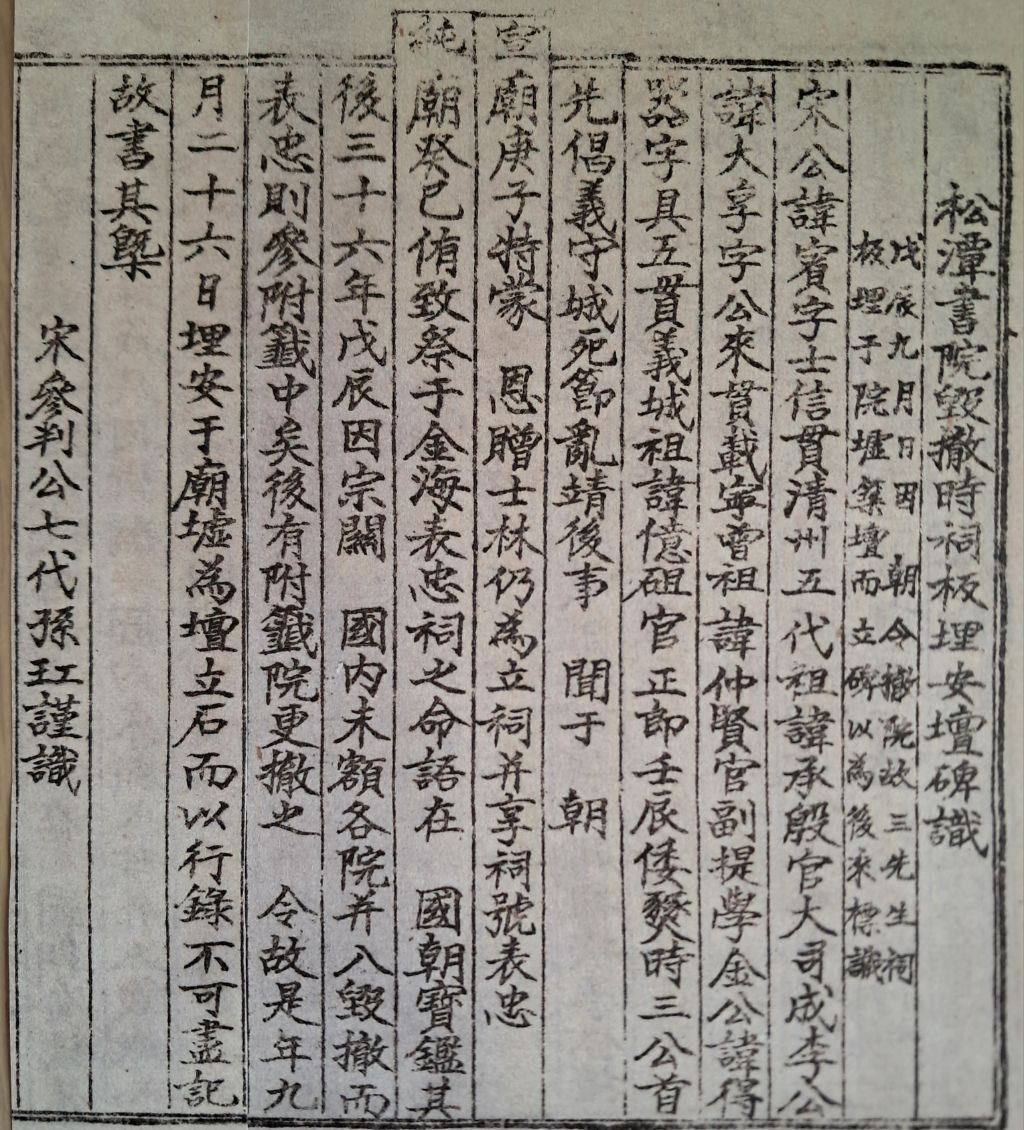 松潭書院毀撤時祠板埋安壇碑識
戊辰九月日因 朝令撤院故三先生祠
板埋于院墟築壇而立碑以為後來標識
宋公諱賓字士信貫清州五代祖諱承殷官大司成李公
諱大享字公來貫載寧曾祖諱仲賢官副提學金公諱得
器字具五貫義城祖諱億砠官正郎壬辰倭燹時三公首
先倡義守城死節亂靖後事 聞于 朝
宣廟庚子特蒙 恩贈士林仍為立祠并享祠號表忠
純廟癸巳侑致祭于金海表忠祠之命語在 國朝寶鑑其
後三十六年戊辰因宗關 國內未額各院并八毀撤而
表忠則參附籤中矣後有附籤院更撤之 令故是年九
月二十六日埋安于廟墟為壇立石而以行錄不可盡記
故書其槩
宋參判公七代孫玒謹識